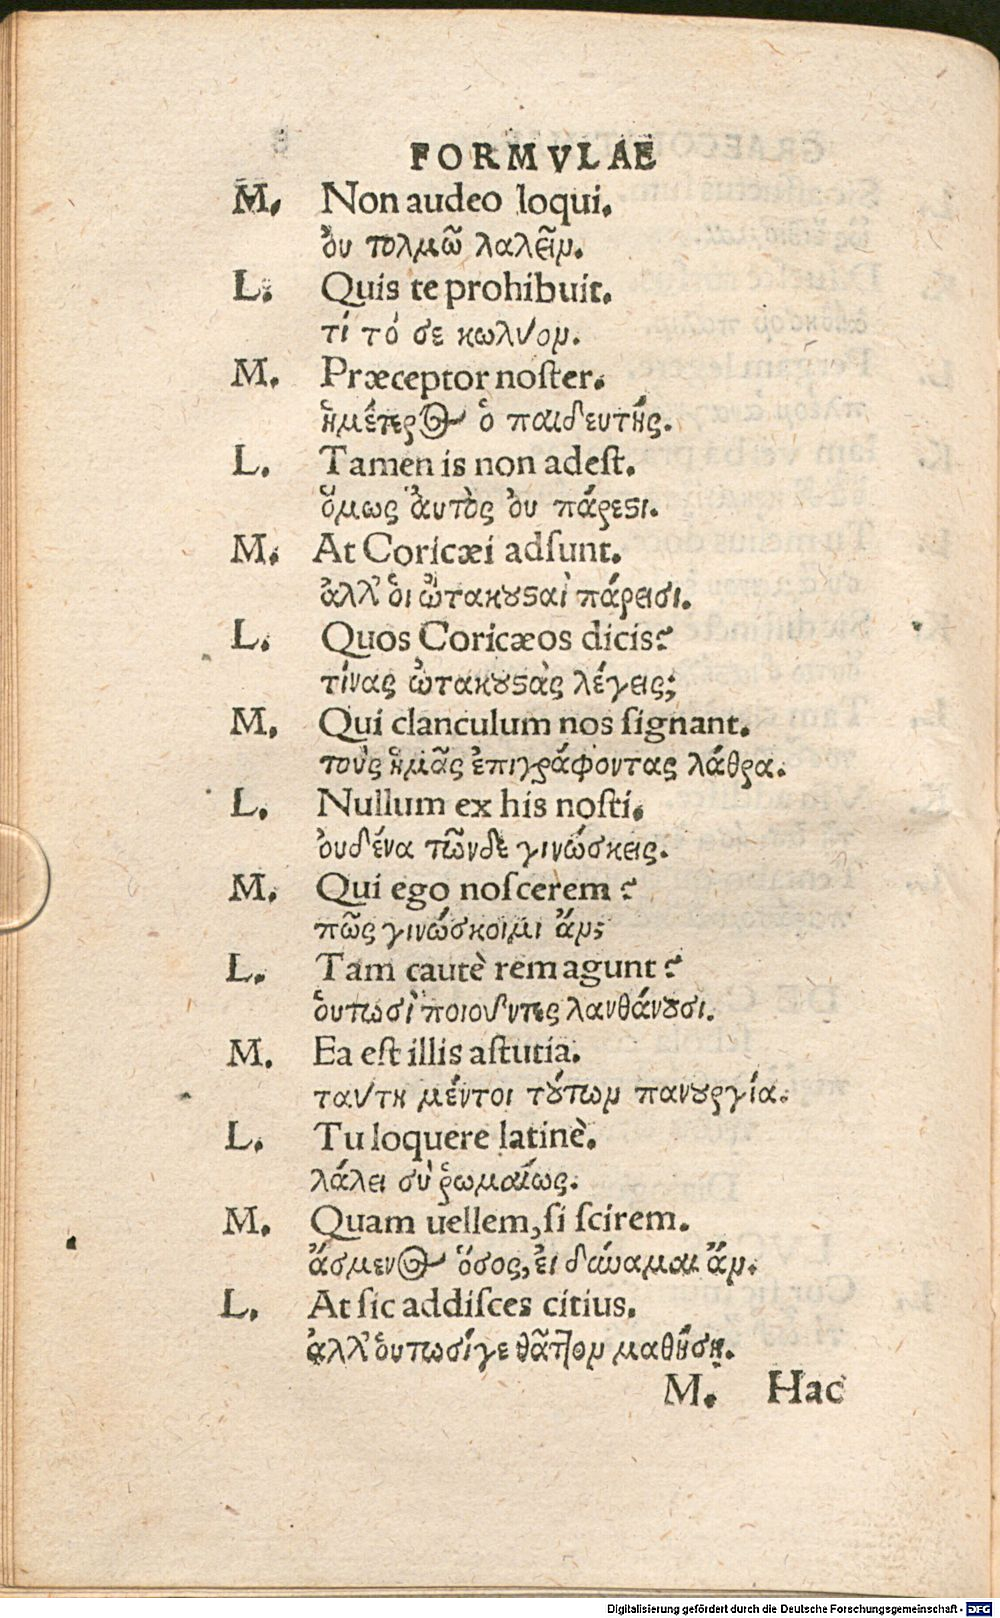 FORMVLAE
M. Non audeo loqui.
ὀυ τολμῶ λαλεῖν.
L. Quis te prohibuit.
τί τό σε κωλύον.
M. Præceptor noſter.
ἡμέτερος ὁ παιδευτής.
L. Tamen is non adeſt.
ὅμως ἀυτὸς ὀυ πάρεϛι.
M. At Coricæi adſunt.
ἀλλ' ὁι ὠτακουϛαὶ πάρεισι.
L. Quos Coricæos dicis?
τίνας ὠτακουϛὰς λέγεις;
M. Qui clanculum nos ſignant.
τοὺς ἡμᾶς ἐπιγράφοντας λάθρα.
L. Nullum ex his noſti.
ὀυδένα τῶνδε γινώσκεις.
M. Qui ego noſcerem?
πῶς γινώσκοιμι ἄν;
L. Tam cautè rem agunt?
ὁυτωσὶ ποιοῦντες λανθάνουσι.
M. Ea eſt illis aſtutia.
ταύτη μέντοι τούτων πανουργία.
L. Tu loquere latinè.
λάλει σὺ ῥωμαίως.
M. Quam uellem, ſi ſcirem.
ἄσμενος ὅσος, ἐι δύναμαι ἄν.
L. At ſic addiſces citius.
ἀλλ' ὁυτωσίγε θᾶττον μαθήσῃ.
M. Hac
Digitalisierung gefördert durch die Deutsche Forschungsgemeinschaft - DFG